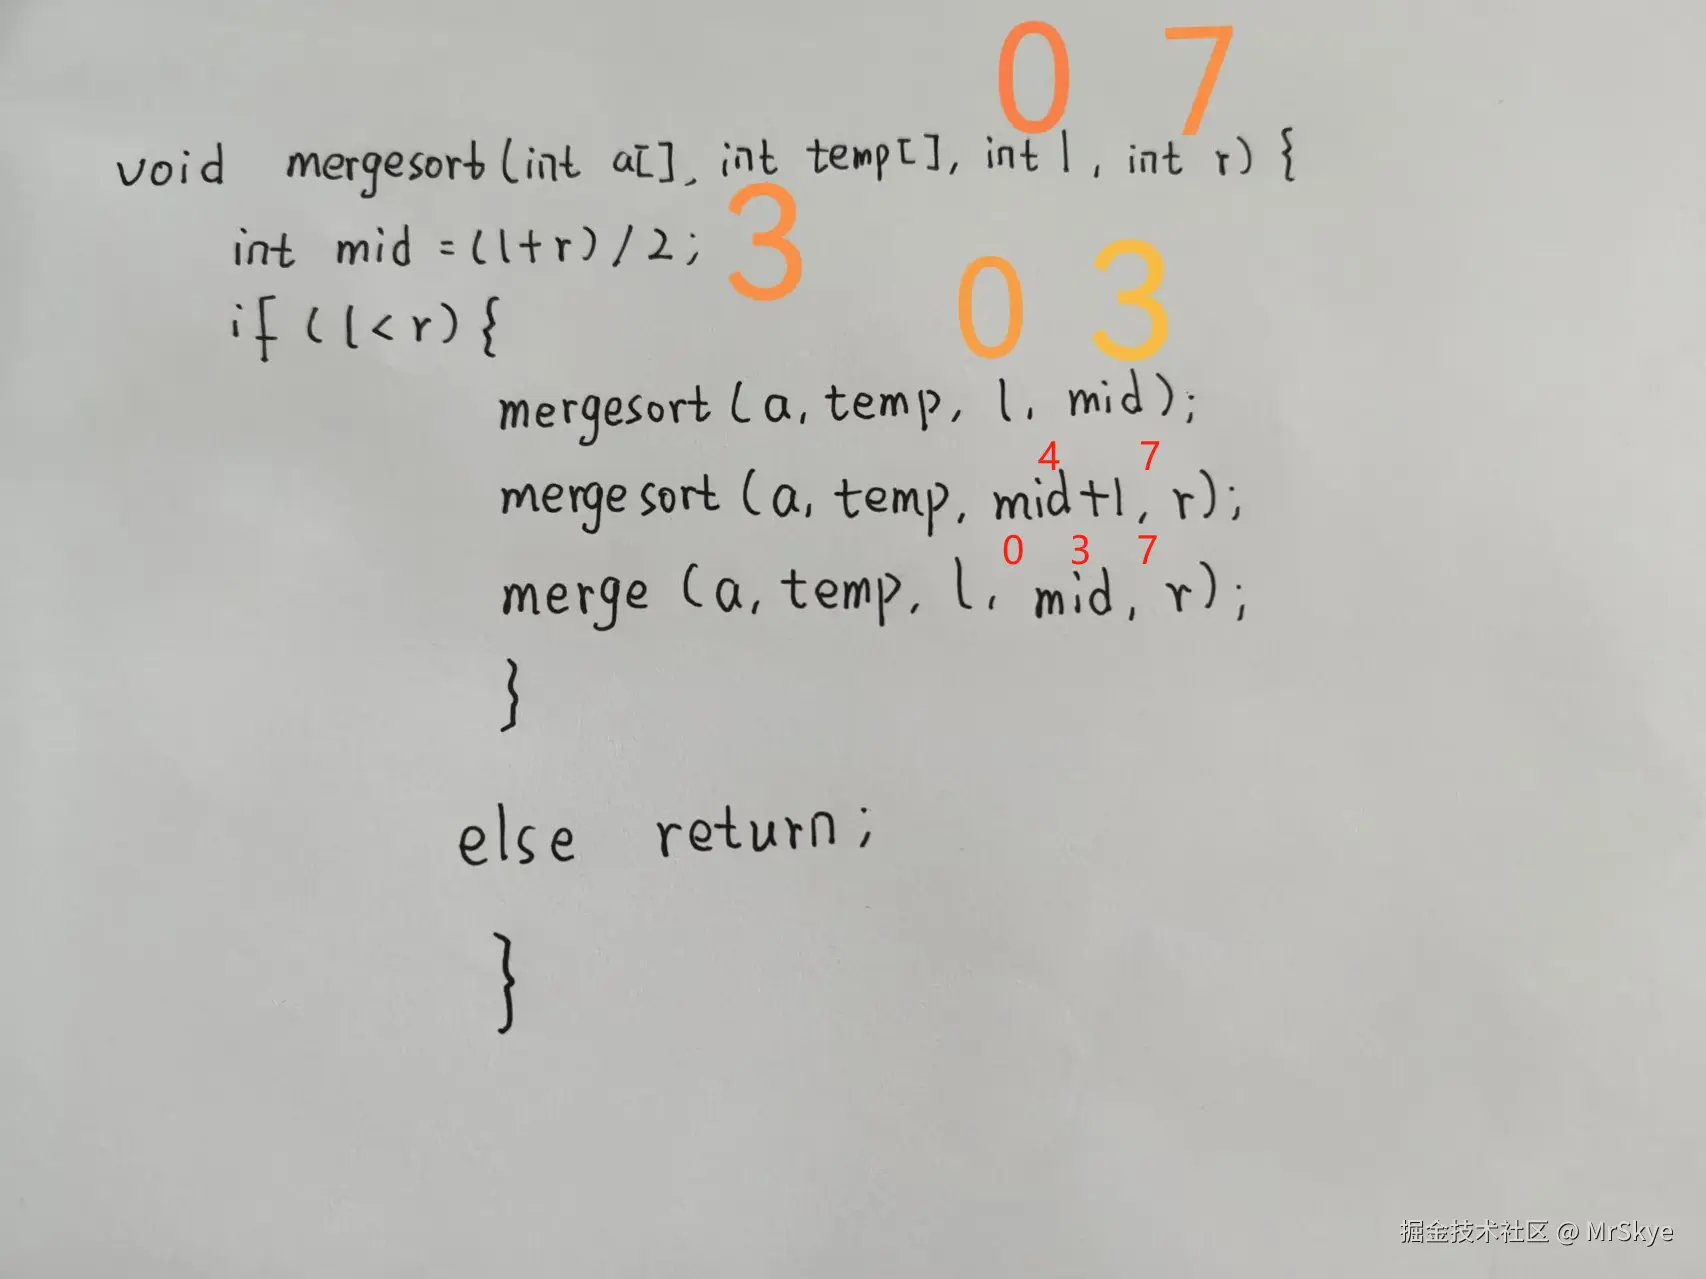 0 7
void mergesort(int a[], int temp[], int l, int r) {
int mid = (l+r)/2; 3
0 3
if (l<r) {
mergesort(a, temp, l, mid);
4 7
mergesort(a, temp, mid+1, r);
0 3 7
merge(a, temp, l, mid, r);
}
else return;
}
掘金技术社区 @ MrSkye